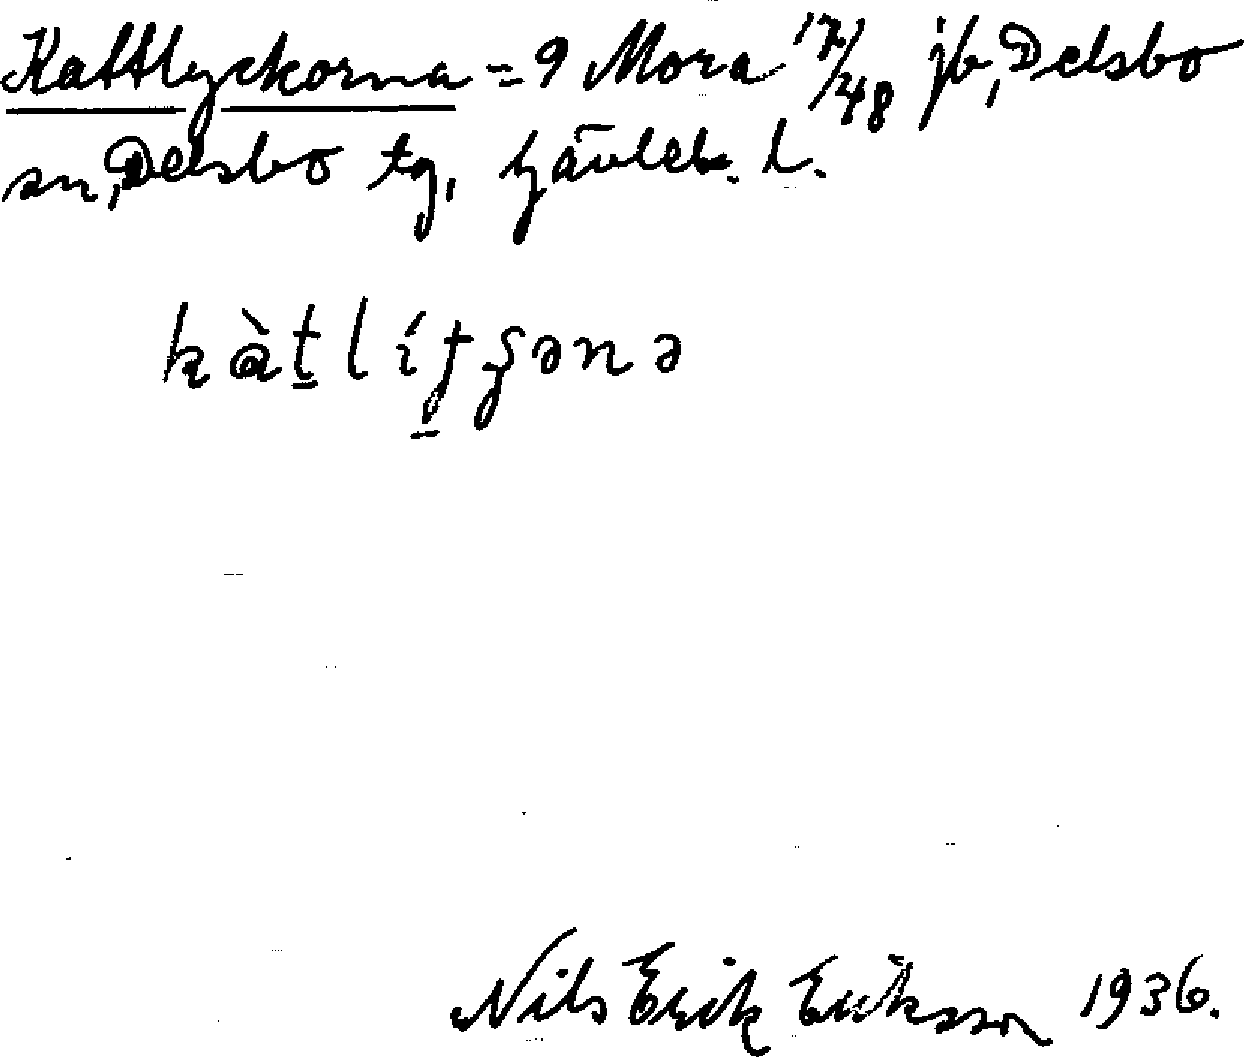 Kattlyckorna = 9 Mora 17/48 jb, Delsbo
sn, Delsbo tg, Gävleb. l.
Nils Erik Eriksson 1936.